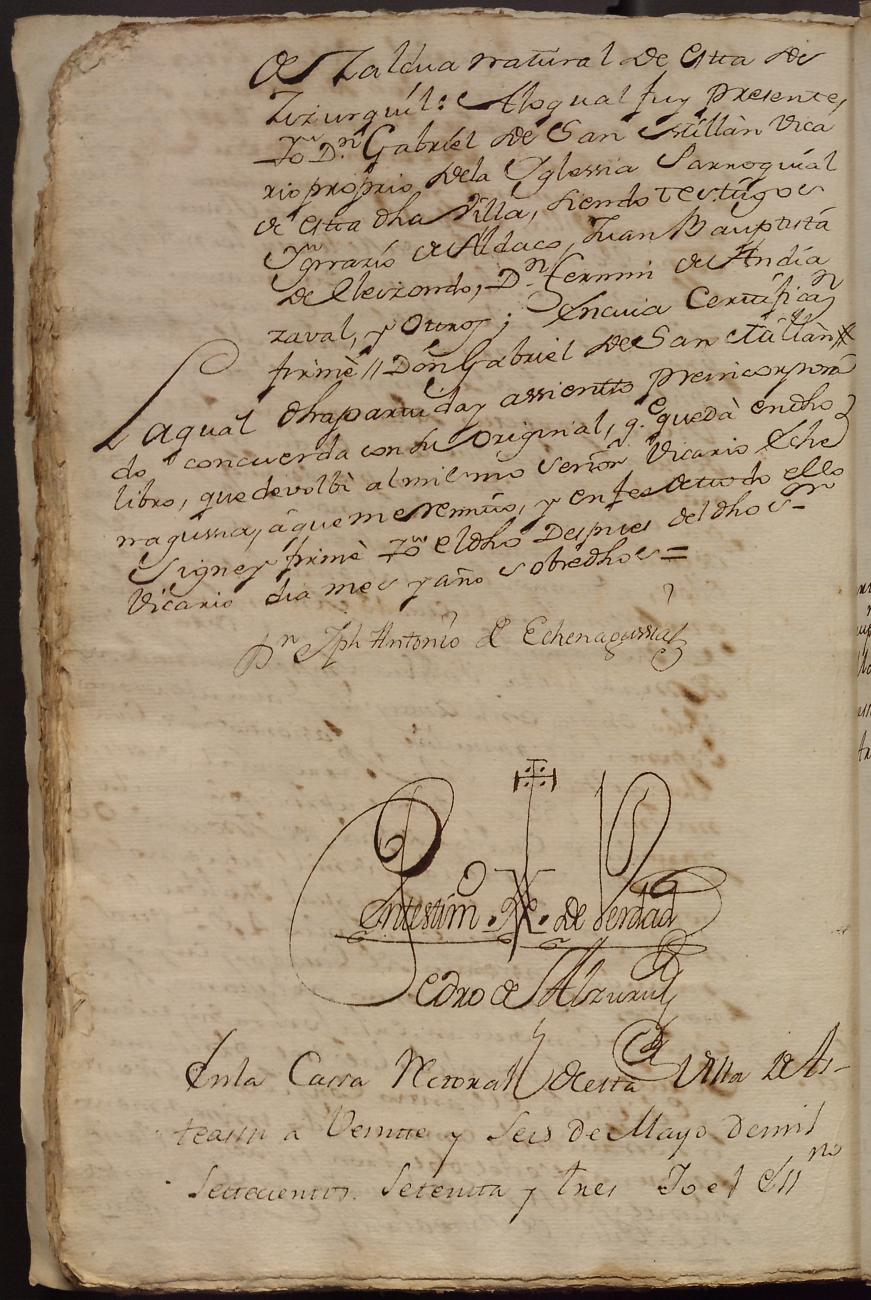 de Zaldua natural de esta de
Zizurquil: Aloqual fuy presente,
Yo Dn. Gabriel de San Millàn Vica
rio próprio dela Yglessia Parroquial
de esta dha Villa, siendo testigos
Ygnazio de Aldaco, Juan Bauptista
de Eleizondo, Dn. Fermin de Andia
zaval, y Otros; En cuia Certificazn
firmè // Dón Gabriel de San Millàn
Laqual dhapartiday assiento preincorpora
do concuerda con su Original, q.e quedà en dho
libro, que devolbi al mismo Señor Vicario Eche
nagussia, àque me remito, y en fee de todo ello
Signey firmè Yo el dho Despues del dho Sr
Vicario dia mes y año sobredhos =
Dn Jph Antonio de Echenagussia
Entestimo. de Verdad
Pedro de Alzuru
Enla Cassa Rectoral de esta Villa de As-
teassu a Veinte y Seis de Mayo de mil
Settecientos. Setenta y tres Yo el Essno